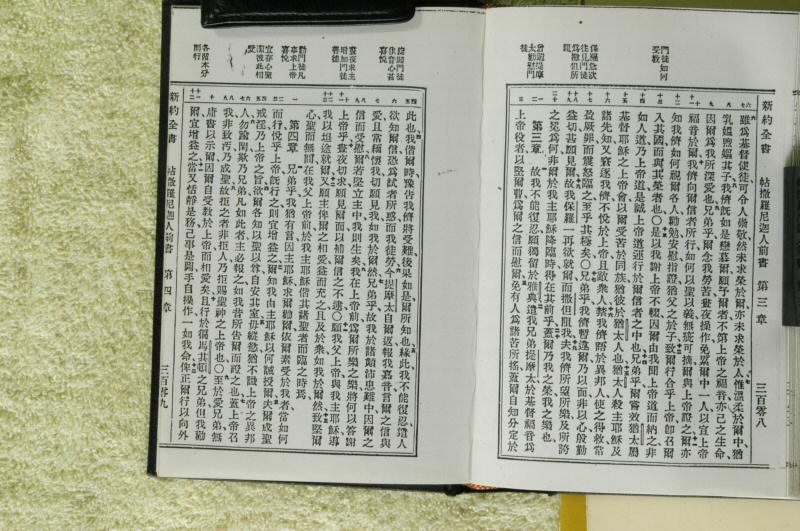 門徒如何受教
保羅急欲往見門徒爲撒但所阻
曾遣提摩太勸慰門徒
新約全書 帖撒羅尼迦人前書 第三章 三百零八
雖爲基督使徒可令人崇敬然未求榮於爾亦未求榮於人惟溫柔於爾中猶
乳媼煦嫗其子我儕旣如是戀慕爾願予爾者不第上帝之福音亦己之生命
因爾爲我所深愛也兄弟乎爾念我勞苦晝夜操作免累爾中一人以宣上帝
福音於爾我儕向爾信者所行如何以聖以義無疵可摘爾與上帝證之爾亦
知我儕如何視爾各人勸勉安慰指證猶父之於子致爾行合乎上帝卽召爾
入其國而與其榮者也〇是以我謝上帝不輟因爾由我聞上帝道而納之非
如人道乃上帝道是誠上帝道運行於爾信者之中也兄弟乎爾嘗效猶太屬
基督耶穌之上帝會以爾受苦於同族猶彼於猶太人也猶太人殺主耶穌及
諸先知又窘逐我儕不悅於上帝且敵衆人禁我儕語於異邦人使之得救常
盈厥罪而震怒臨之至乎其極矣〇兄弟乎我儕暫違爾乃以面非以心殷勤
益切甚願見爾故我保羅一再欲就爾而撒但阻我夫我儕所望所樂及所誇
之冕爲何非爾於我主耶穌降臨時得在其前乎蓋爾乃我之榮我之樂也
第三章 故我不能復忍願獨留於雅典遣我兄弟提摩太於基督福音爲
上帝役者以堅爾督爲爾之信而慰爾免有人爲諸苦所搖蓋爾自知分定於
旋聞門徒佳音心甚喜悅
晝夜求主增加門徒善德
勸門徒凡事求上帝喜悅
宜存心聖潔彼此相愛
各盡本分而行
此也我偕爾時豫吿我儕將受難後果如是爾所知也緣此我不能復忍遣人
欲知爾信恐爲試者所惑而我徒勞今提摩太自爾返報我嘉音言爾之信與
愛且常稱懷我切願見我如我於爾然兄弟乎故我於諸顚沛患難中因爾之
信而受慰爾若堅立主中我則生矣我在上帝前爲爾所樂之樂將何以答謝
上帝乎晝夜切求願見爾面以補爾信之不逮〇願我父上帝與我主耶穌導
我以坦途就爾又願主俾爾之相愛益而充之且及於衆如我於爾然致堅爾
心聖而無間在我父上帝前於我主耶穌偕其諸聖者而臨之時焉
第四章 兄弟乎我猶有言因主耶穌求爾勸爾依爾素受於我者當如何
而行悅乎上帝旣行之則宜增益之爾知我由主耶穌以何誡授爾夫爾成聖
戒淫乃上帝之旨欲爾各知以聖以尊自安其室毋縱慾猶不識上帝之異邦
人勿踰閑欺乃兄弟凡如此者主必報之如我昔所吿爾而證之也蓋上帝召
我非致汚乃成聖故拒之者非拒人乃拒賜聖神之上帝也〇至於愛兄弟無
庸書以示爾因爾自受敎於上帝而相愛矣且行於徧馬其頓之兄弟但我勸
爾宜增益之當又恬靜是務己事是圖手自操作一如我命俾正爾行以向外
新約全書 帖撒羅尼迦人前書 第四章 三百零九